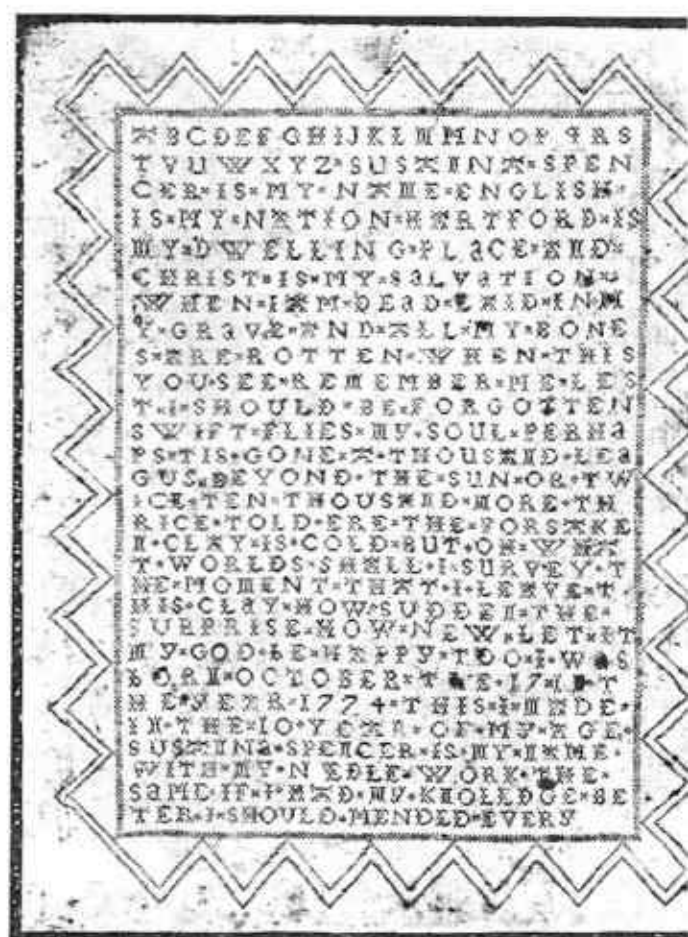 ABCDEFGHIJKLMMNOPQRS
TVUWXYZ×SUSAINA×SPEN
CER×IS×MY×NAME×ENGLISH×
IS×MY×NATION×HARTFORD×IS
MY×DWELLING×PLACE×AND×
CHRIST×IS×MY×SALVATION×
WHEN×I×AM×DEAD×LAID×IN×M
Y×GRAVE×AND×ALL×MY×BONE
S×ARE×ROTTEN×WHEN×THIS
YOU×SEE×REMEMBER×ME×LES
T×I×SHOULD×BE×FORGOTTEN
SWIFT×FLIES×MY×SOUL×PERHA
PS×TIS×GONE×A×THOUSAND×LEA
GUS×BEYOND×THE×SUN×OR×TW
ICE×TEN×THOUSAND×MORE×TH
RICE×TOLD×ERE×THE×FORSAKE
N×CLAY×IS×COLD×BUT×OH×WHA
T×WORLDS×SHALL×I×SURVEY×T
HE×MOMENT×THAT×I×LEAVE×T
HIS×CLAY×HOW×SUDDEN×THE×
SURPRISE×HOW×NEW×LET×IT
MY×GOD×BE×HAPPY×TDO×I×WAS
BORN×OCTOBER×THE×17××T
HE×YEAR×1774×THIS×I×MADE×
IN×THE×10×YEAR×OF×MY×AGE×
SUSAINA×SPENCER×IS×MY×NAME×
WITH×MY×NEDLE×WORK×THE×
SAME×IF×I×HAD×MY×KNOLEDGE×BE
TER×I×SHOULD×MENDLD×EVERY